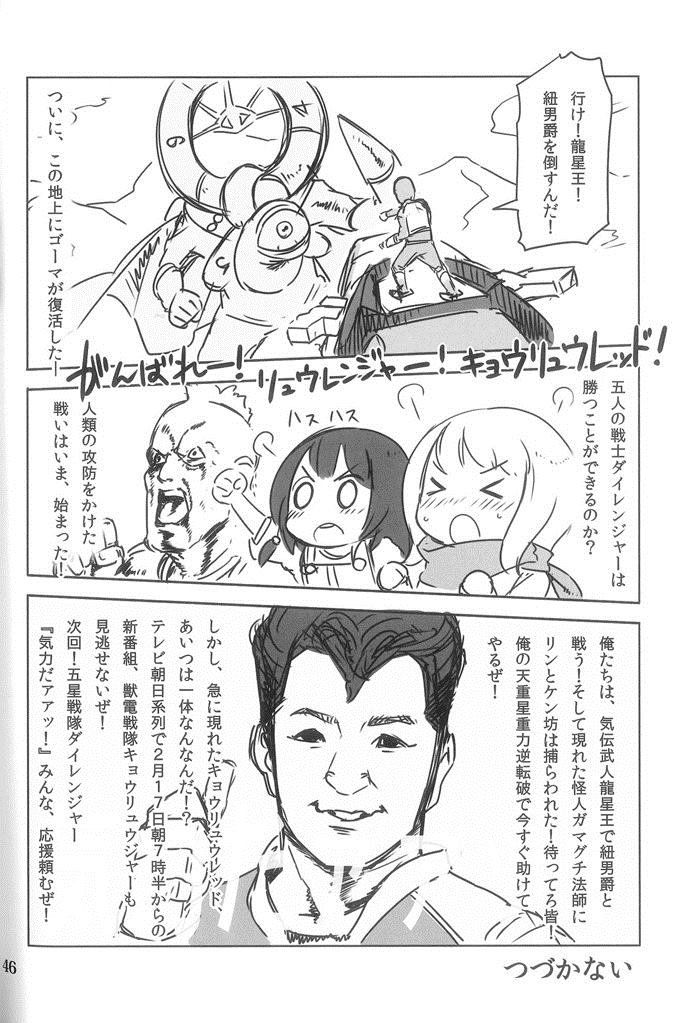 行け！龍星王！
紐男爵を倒すんだ！
ついに、この地上にゴーマが復活したー
がんばれー！
リュウレンジャー！
キョウリュウレッド！
五人の戦士ダイレンジャーは
勝つことができるのか？
ハス ハス
人類の攻防をかけた
戦いはいま、始まった！
俺たちは、気伝武人龍星王で紐男爵と
戦う！そして現れた怪人ガマグチ法師に
リンとケン坊は捕らわれた！待ってろ皆！
俺の天重星重力逆転破で今すぐ助けて
やるぜ！
しかし、急に現れたキョウリュウレッド、
あいつは一体なんなんだ！？
テレビ朝日系列で2月17日朝7時半からの
新番組、獣電戦隊キョウリュウジャーも
見逃せないぜ！
次回！五星戦隊ダイレンジャー
『気力だアァッ！』みんな、応援頼むぜ！
つづかない
46